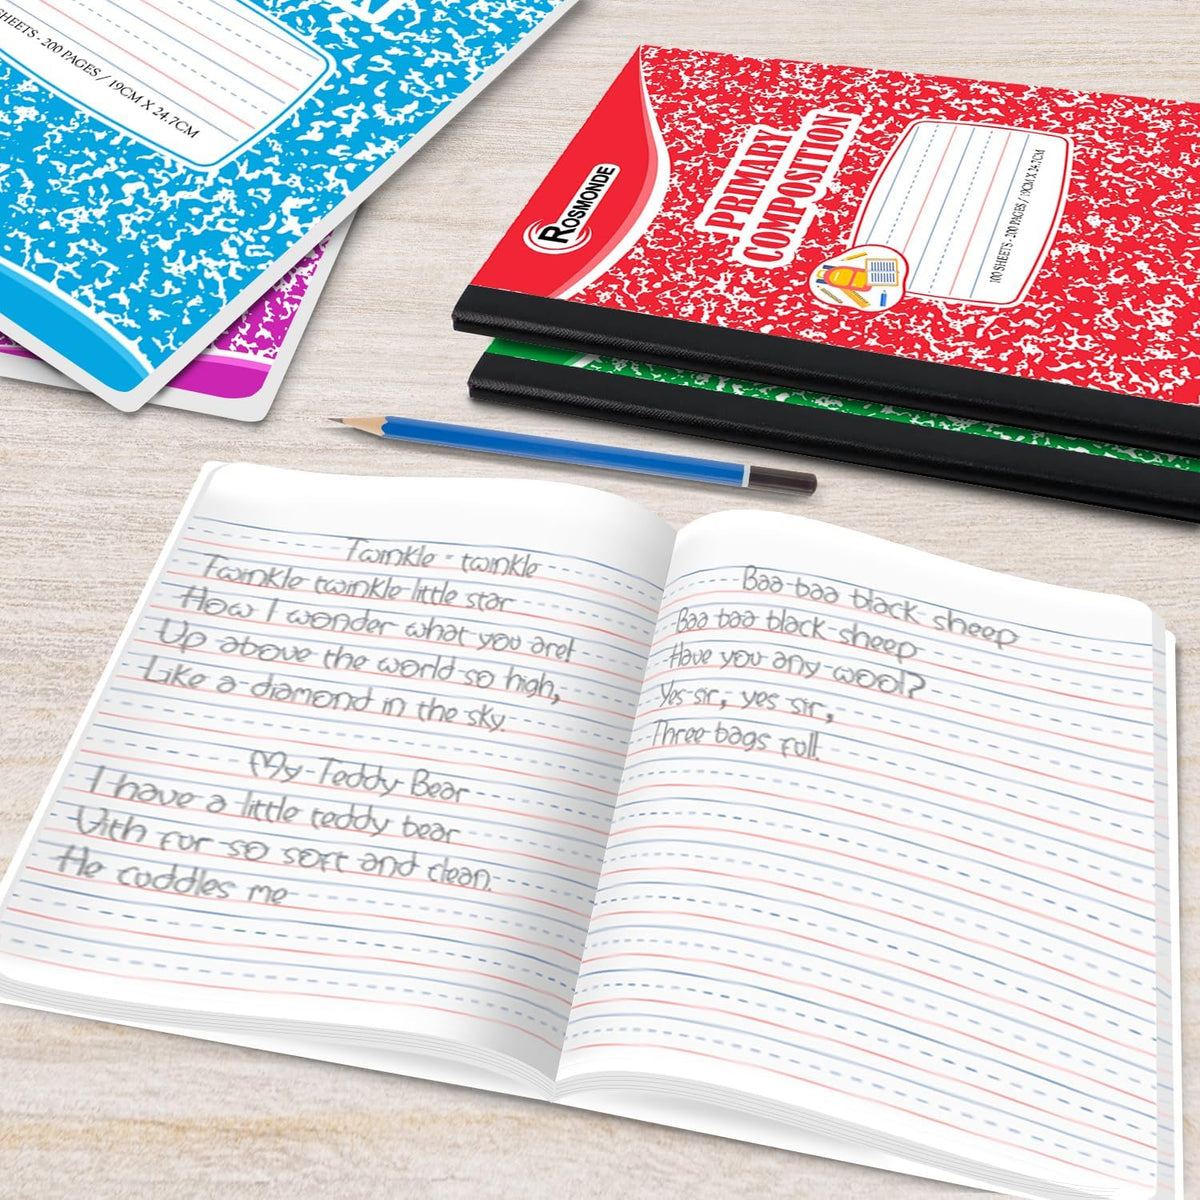 N
SHEETS - 200 PAGES / 19CM X 24.7CM
ROSMONDE
PRIMARY
COMPOSITION
100 SHEETS - 200 PAGES / 19CM X 24.7CM
Twinkle - twinkle
Twinkle twinkle little star
How I wonder what you are!
Up above the world so high,
Like a diamond in the sky.
My Teddy Bear
I have a little teddy bear
Vith fur so soft and clean.
He cuddles me
Baa baa black sheep
Baa baa black sheep
Have you any wool?
Yes sir, yes sir,
Three bags full.